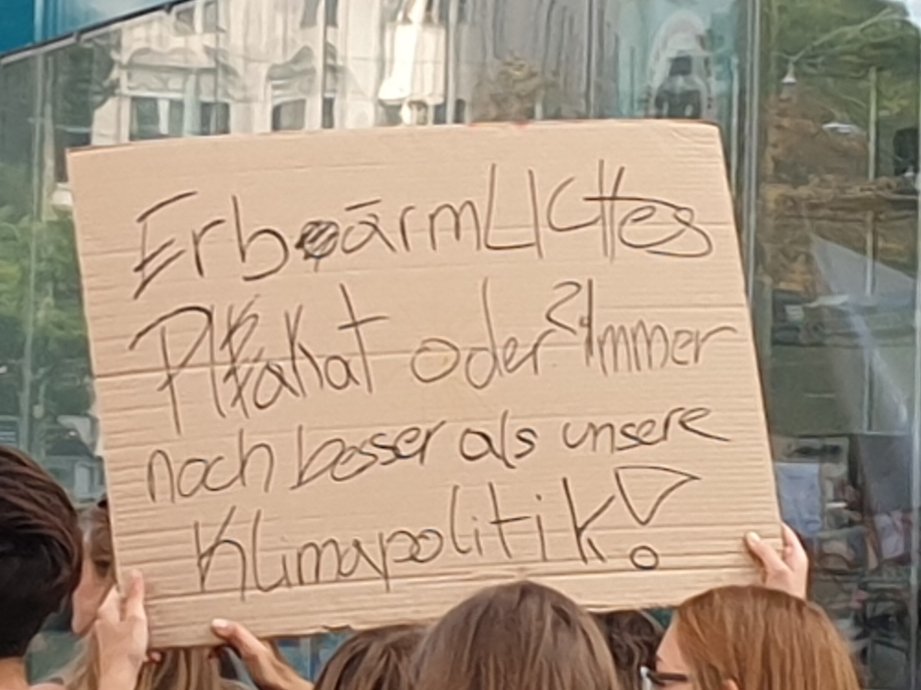 ErbärmLICHes
Plakat oder? Immer
noch besser als unsere
Klimapolitik!